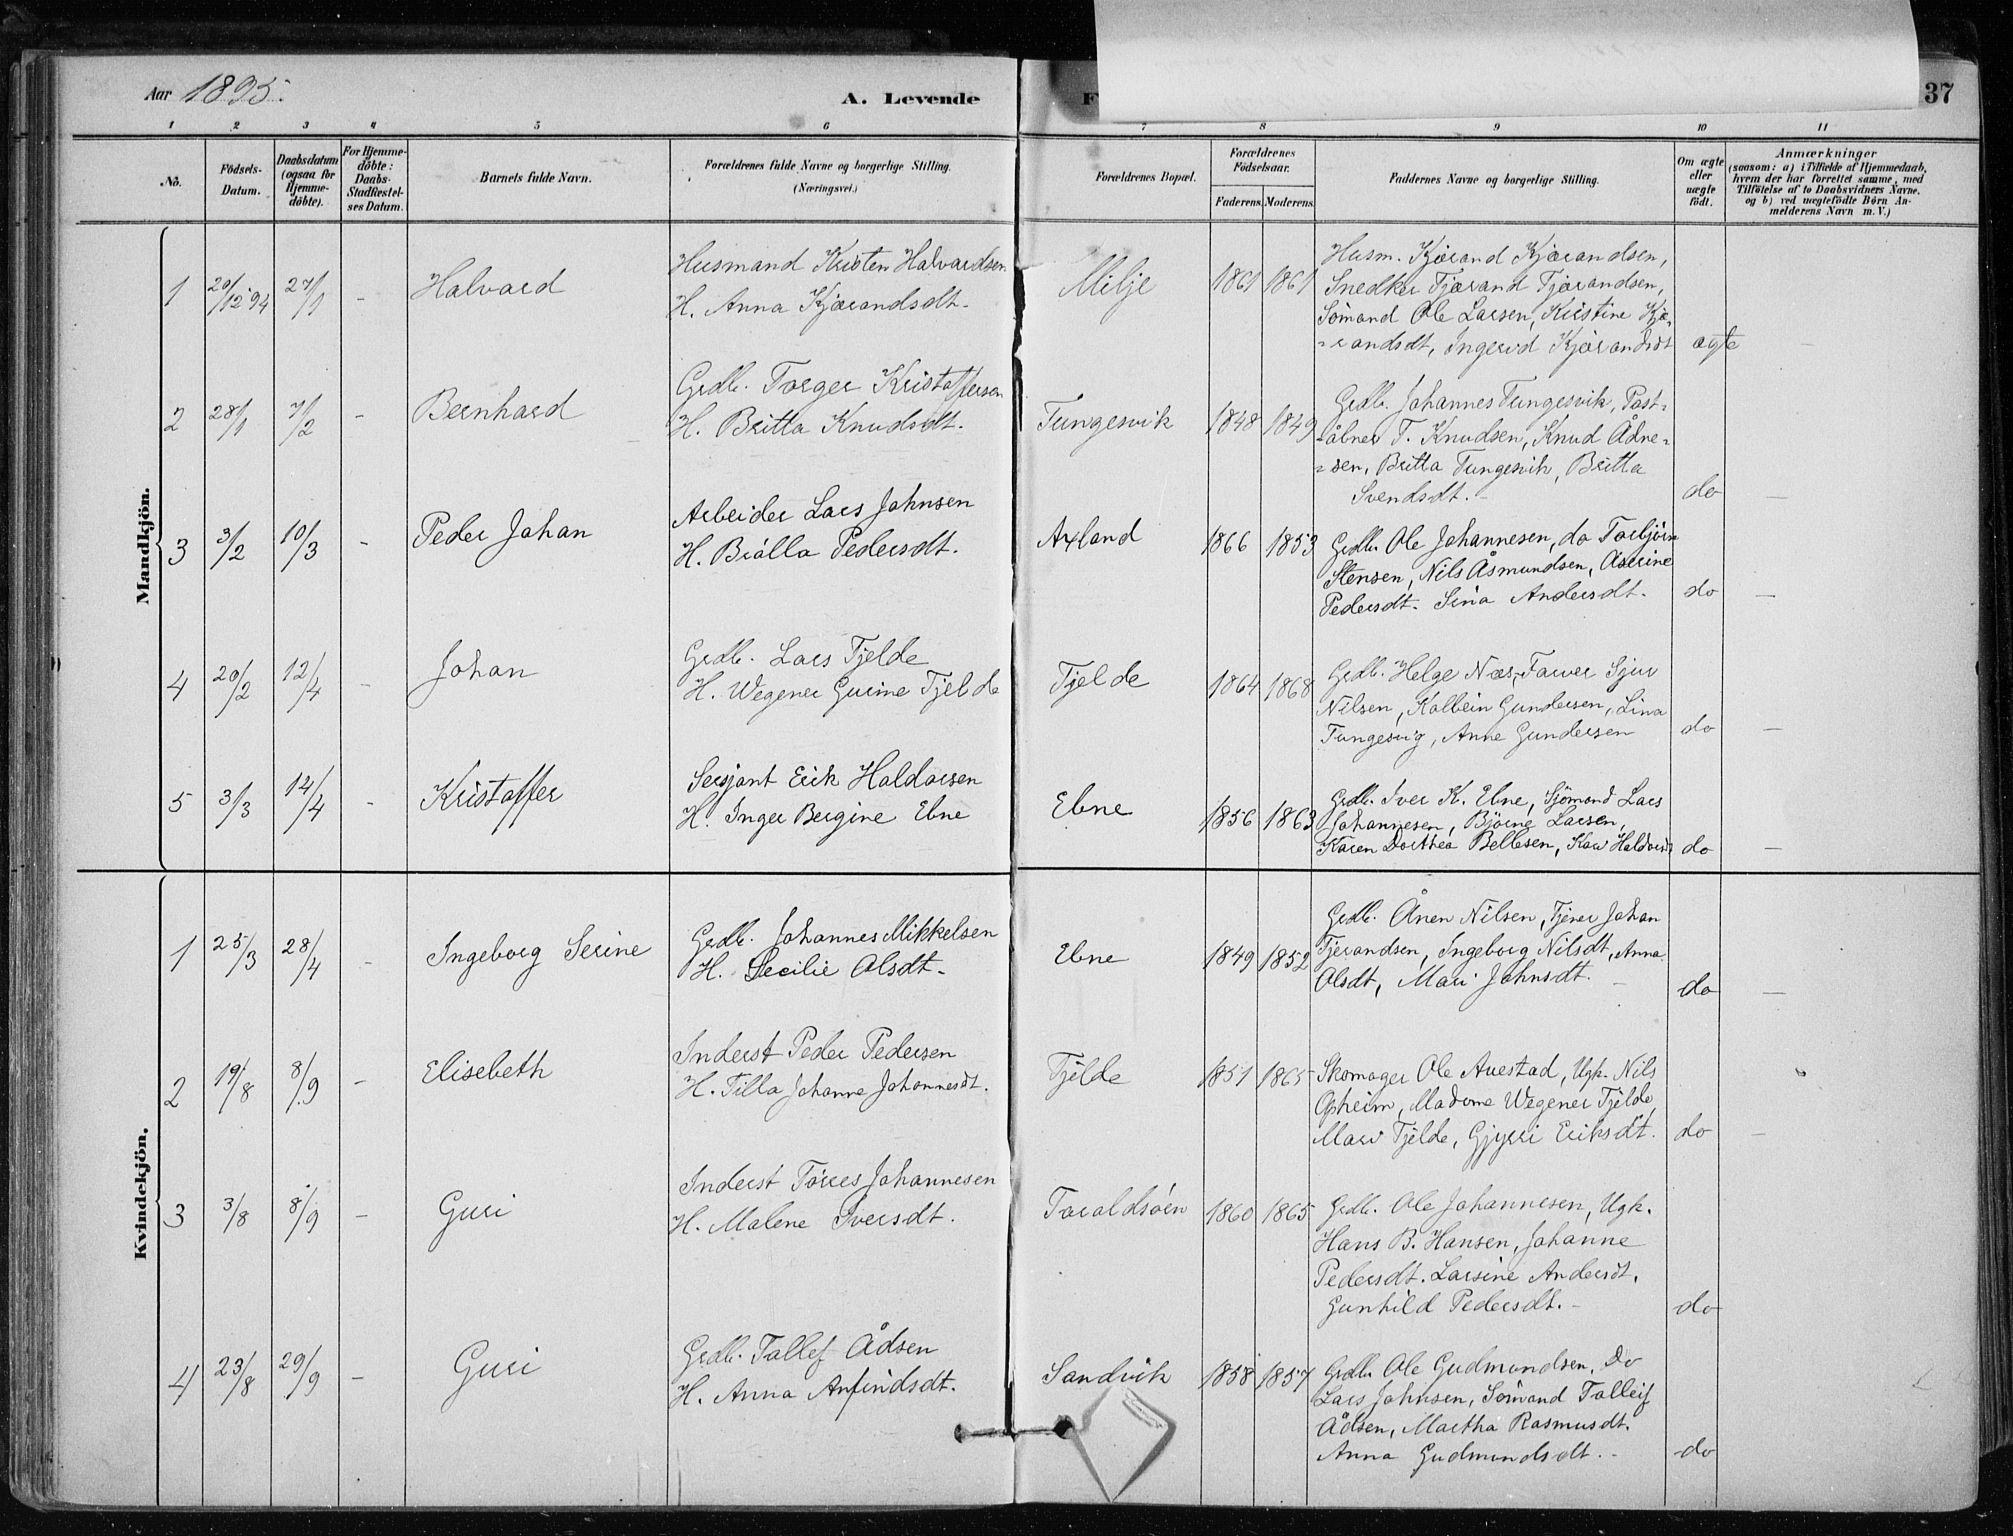 Aar 1895.
A. Levende
37
1 2 3 4 5 6 7 8 9 10 11
No.
Födsels-Datum.
Daabsdatum (ogsaa for Hjemme-döbte).
For Hjemme-döbte: Daabs-Stadfæstel-ses Datum.
Barnets fulde Navn.
Forældrenes fulde Navne og borgerlige Stilling. (Næringsvei.)
Forældrenes Bopæl.
Forældrenes Födselsaar.
Faderens. Moderens.
Faddernes Navne og borgerlige Stilling.
Om ægte eller uægte födt.
Anmærkninger
(saasom: a) i Tilfælde af Hjemmedaab,
hvem der har forrettet samme, med
Tilföielse af to Daabsvidners Navne.
og b) ved uægtefödte Børn An-
melderens Navn m. V.)
Mandkjön.
1 20/12 94 27/1 - Halvard
Husmand Kristen Halvardsen
H. Anna Kjærandsdt.
Milje 1861 1861
Husm. Kjærand Kjærandsen,
Snedker Tjærand Tjærandsen,
Sömand Ole Larsen, Kristine Kjæ-
-randsdt, Ingerid Kjærandsdt
ægte -
2 28/1 7/2 - Bernhard
Grdb. Torger Kristoffersen
H. Britta Knudsdt.
Tungesvik 1848 1849
Grdb. Johannes Tungesvik, Post-
-åbner T. Knudsen, Knud Ådne-
-sen, Britta Tungesvik, Britta
Svendsdt.
do -
3 3/2 10/3 - Peder Johan
Arbeider Lars Johnsen
H. Pedersdt.
Axland 1866 1853
Grdb. Ole Johannesen, do Torbjörn
Stensen, Nils Åsmundsen, Aserine
Pedersdt. Sina Andersdt.
do -
4 20/2 12/4 - Johan
Grdb. Lars Tjelde
H. Wegener Gurine Tjelde
Tjelde 1864 1868
Grdb. Helge Næs, Farver Sjur
Nilsen, Kolbein Gundersen, Lina
Tungesvig, Anne Gundersen
do -
5 3/3 14/4 - Kristoffer
Sersjant Erik Haldorsen
H. Inger Bergine Ebne
Ebne 1856 1863
Grdb. Iver K. Ebne, Sjömand Lars
Johannesen, Bjørne Larsen,
Karen Dorthea Bellesen, Kari
do -
Kvindekjön.
1 25/3 28/4 - Ingeborg Serine
Grdb. Johannes Mikkelsen
H. Secilie Olsdt.
Ebne 1849 1852
Grdb. Ånen Nilsen, Tjener Johan
Tjerandsen, Ingeborg Nilsdt, Anna
Olsdt, Mari Johnsdt.
do -
2 19/8 8/9 - Elisebeth
Inderst Peder Pedersen
H. Tilla Johanne Johannesdt.
Tjelde 1851 1865
Skomager Ole Auestad, Ugk. Nils
Opheim, Madame Wegener Tjelde
Mari Tjelde, Gjyri Eriksdt.
do -
3 3/8 8/9 - Guri
Inderst Törres Johannesen
H. Malene Iversdt.
Taraldsöen 1860 1865
Grdb. Ole Johannesen, Ugk.
Hans B. Hansen, Johanne
Pedersdt. Larsine Andersdt.
Gunhild Pedersdt. -
do
4 23/8 29/9 - Guri
Grdb. Tollef Ådsen
H. Anna Anfindsdt.
Sandvik 1858 1857
Grdb. Ole Gudmundsen, do
Lars Johnsen, Sömand Tolleif
Ådsen, Martha Rasmusdt.
Anna Gudmundsdt. -
do